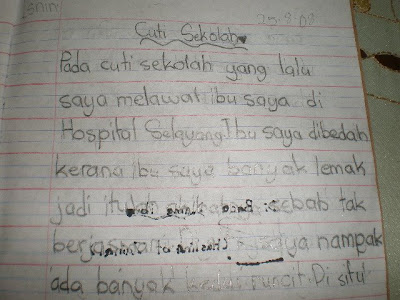 snim
Cuti Sekolah
Pada cuti sekolah yang lalu
saya melawat ibu saya di
Hospital Selayang. Ibu saya dibedah
kerana ibu saya banyak lemak
jadi itulah sebab tak
nampak
ada banyak Di situ